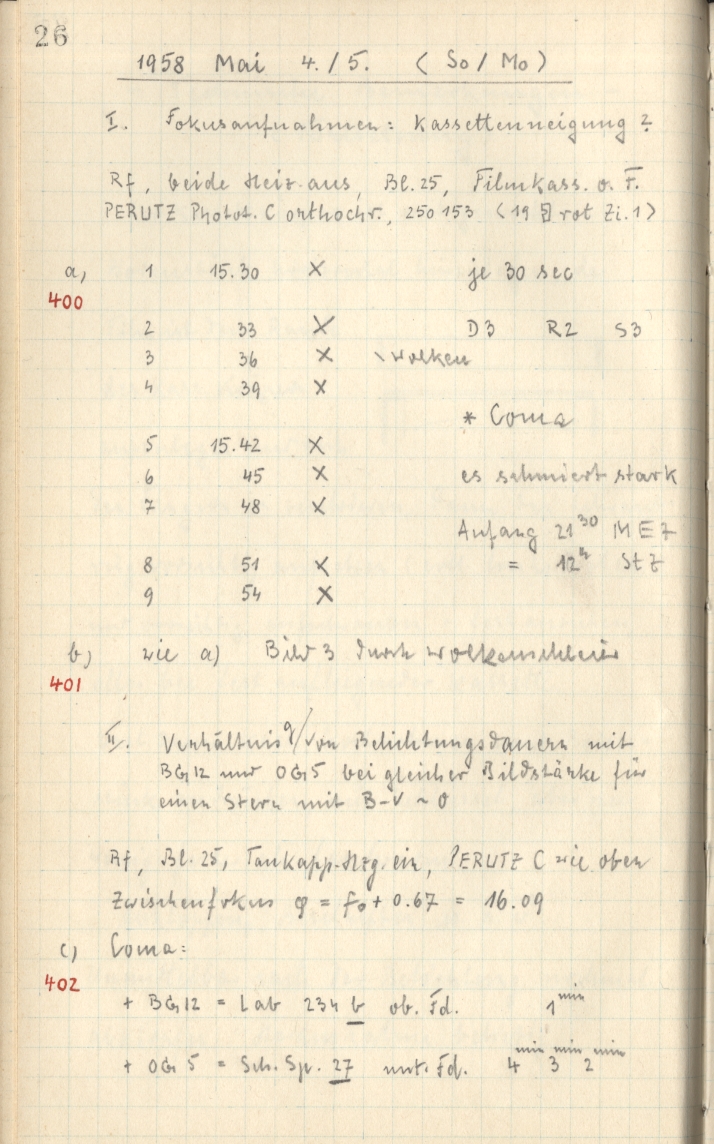 26
1958 Mai 4./5. (So/Mo)
I. Fokusaufnahmen: Kassettenneigung?
Rf, beide Heiz. aus, Bl. 25, Filmkass. o. F.
PERUTZ Photot. C orthochr., 250 153 (19 rot Zi. 1)
a, 1 15.30 X je 30 sec
400
2 33 X D3 R2 S3
3 36 X \ Wolken
4 39 X
* Coma
5 15.42 X
6 45 X es schmiert stark
7 48 X
Anfang 21 30 MEZ
8 51 X = 12 h StZ
9 54 X
b) wie a) Bild 3 durch Wolkenschleier
401
II. Verhältnis q von Belichtungsdauern mit
BG12 und OG5 bei gleicher Bildstärke für
einen Stern mit B-V ~ 0
Rf, Bl. 25, Taukapp.-Hzg. ein, PERUTZ C wie oben
Zwischenfokus φ = f₀ + 0.67 = 16.09
c) Coma:
402
+ BG12 = Lab 234 b ob. Fd. 1 min
+ OG5 = Sch. Sp. 27 unt. Fd. 4 min 3 min 2 min